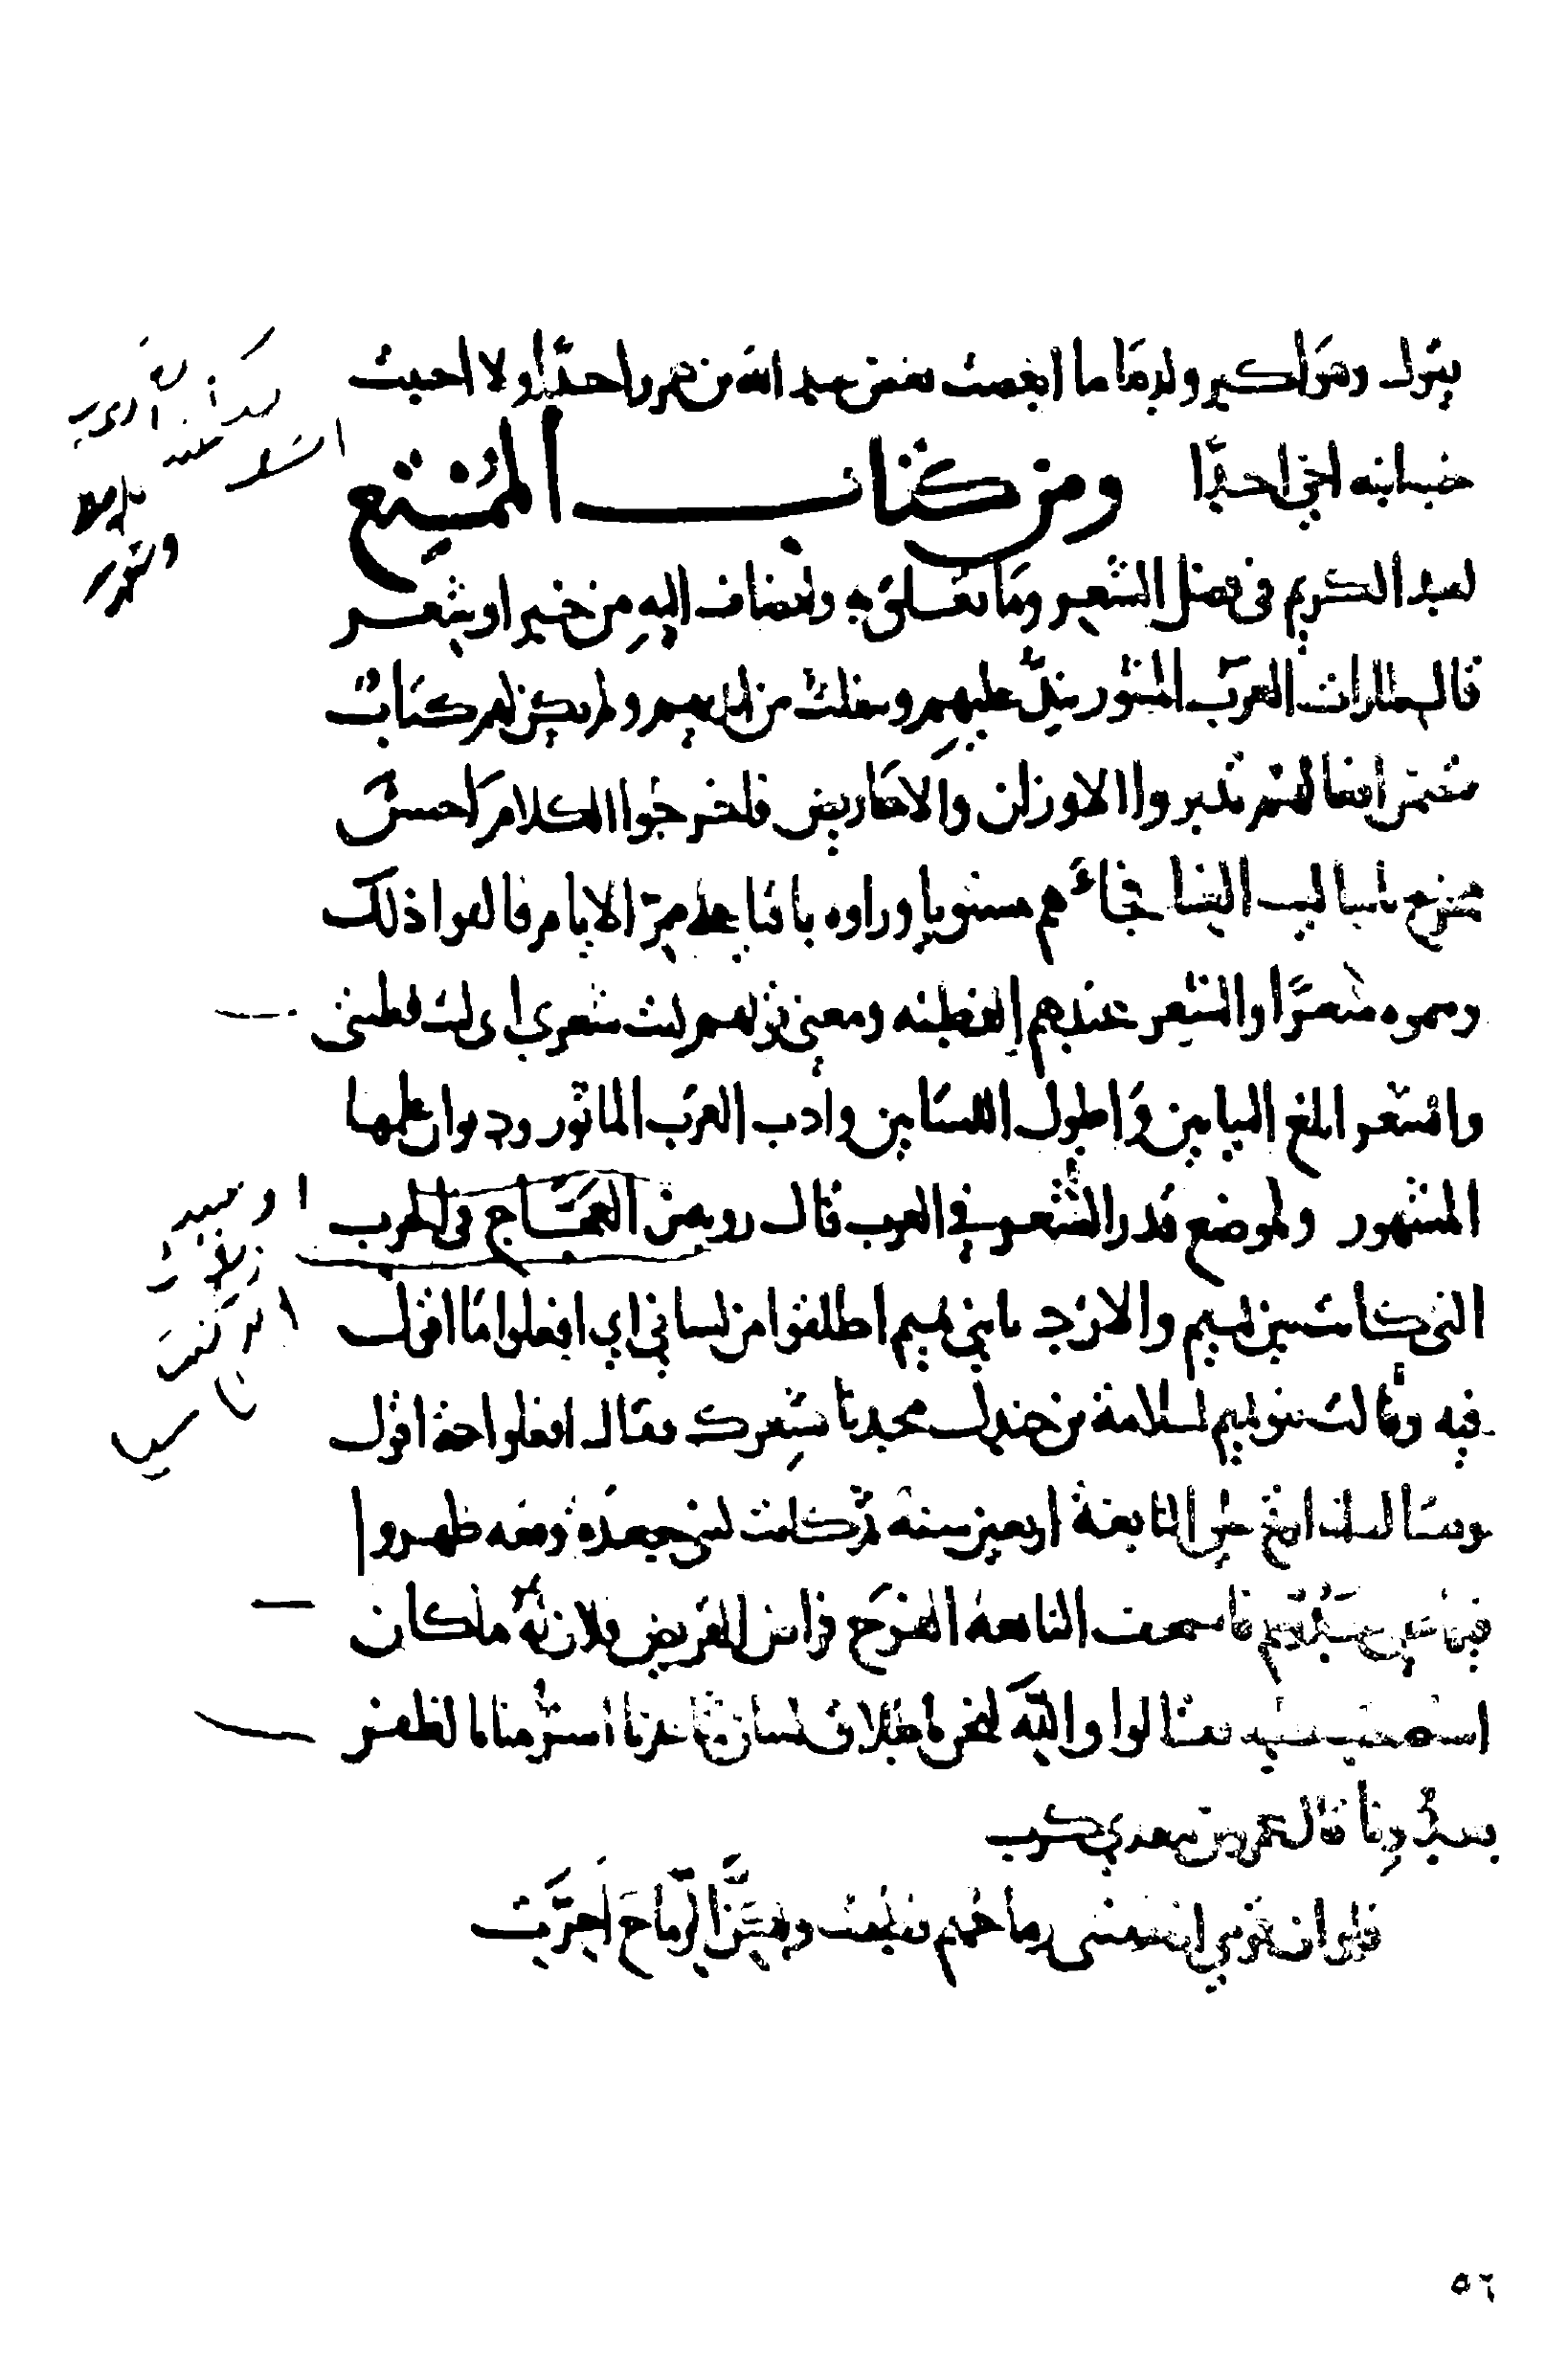 يقول وهو اكبر ولدها ما ابغضت بغض عبد الله بن عمر واحدا ولا احببت
حب ابنه اخي احدا ومن كتاب الممتع
لعبد الكريم في فضل الشعر وما تعلق به وانضاف اليه من خبر او شعر
قال لما رات العرب المنثور يند عليهم وينفلت من ايديهم ولم يكن لهم كتاب
يتضمن افعالهم تدبروا الاوزان والاعاريض فاخرجوا الكلام احسن
مخرج باساليب الغنا فجاءهم مستويا وراوه باقيا على ممر الايام فالفوا ذلك
وسموه شعرا والشعر عندهم الفطنه ومعنى قولهم ليت شعري اى ليت فطنتى
والشعر ابلغ البيانين واطول اللسانين وادب العرب الماثور وديوان علمها
المشهور ولموضع قدر الشعر في العرب قال روبه بن العجاج فى الحرب
التى كانت بين تميم والازد يا بني تميم اطلقوا من لساني اي افعلوا ما اقول
فيه وقالت بنو تميم لسلامة بن جندل مجدنا بشعرك فقال افعلوا حتى اقول
ويقال انه ارتج على النابغة اربعين سنه ثم كانت لبنى جعدة وقعه ظهروا
فيها على عدوهم فاستخف النابغة الفرح فراض القريض فلان له ما كان
استصعب عليه فقالوا والله لنحن باطلاق لسان شاعرنا اسر منا بالظفر
بعدونا قال عمرو بن معدي كرب
فلو ان قومي انطقتنى رماحهم نطقت ولكن الرماح اجرت
٥٦